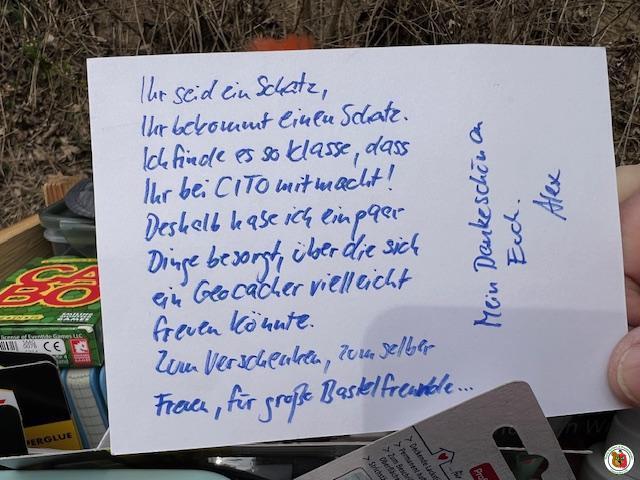 Ihr seid ein Schatz,
Ihr bekommt einen Schatz.
Ich finde es so klasse, dass
Ihr bei CITO mitmacht!
Deshalb habe ich ein paar
Dinge besorgt, über die sich
ein Geocacher vielleicht
freuen könnte.
Zum Verschenken, zum selber
Freuen, für große Bastelfreunde...
Mein Dankeschön an
Euch.
Alex
CABO
license of Eventide Games LLC
CE
PERGLUE